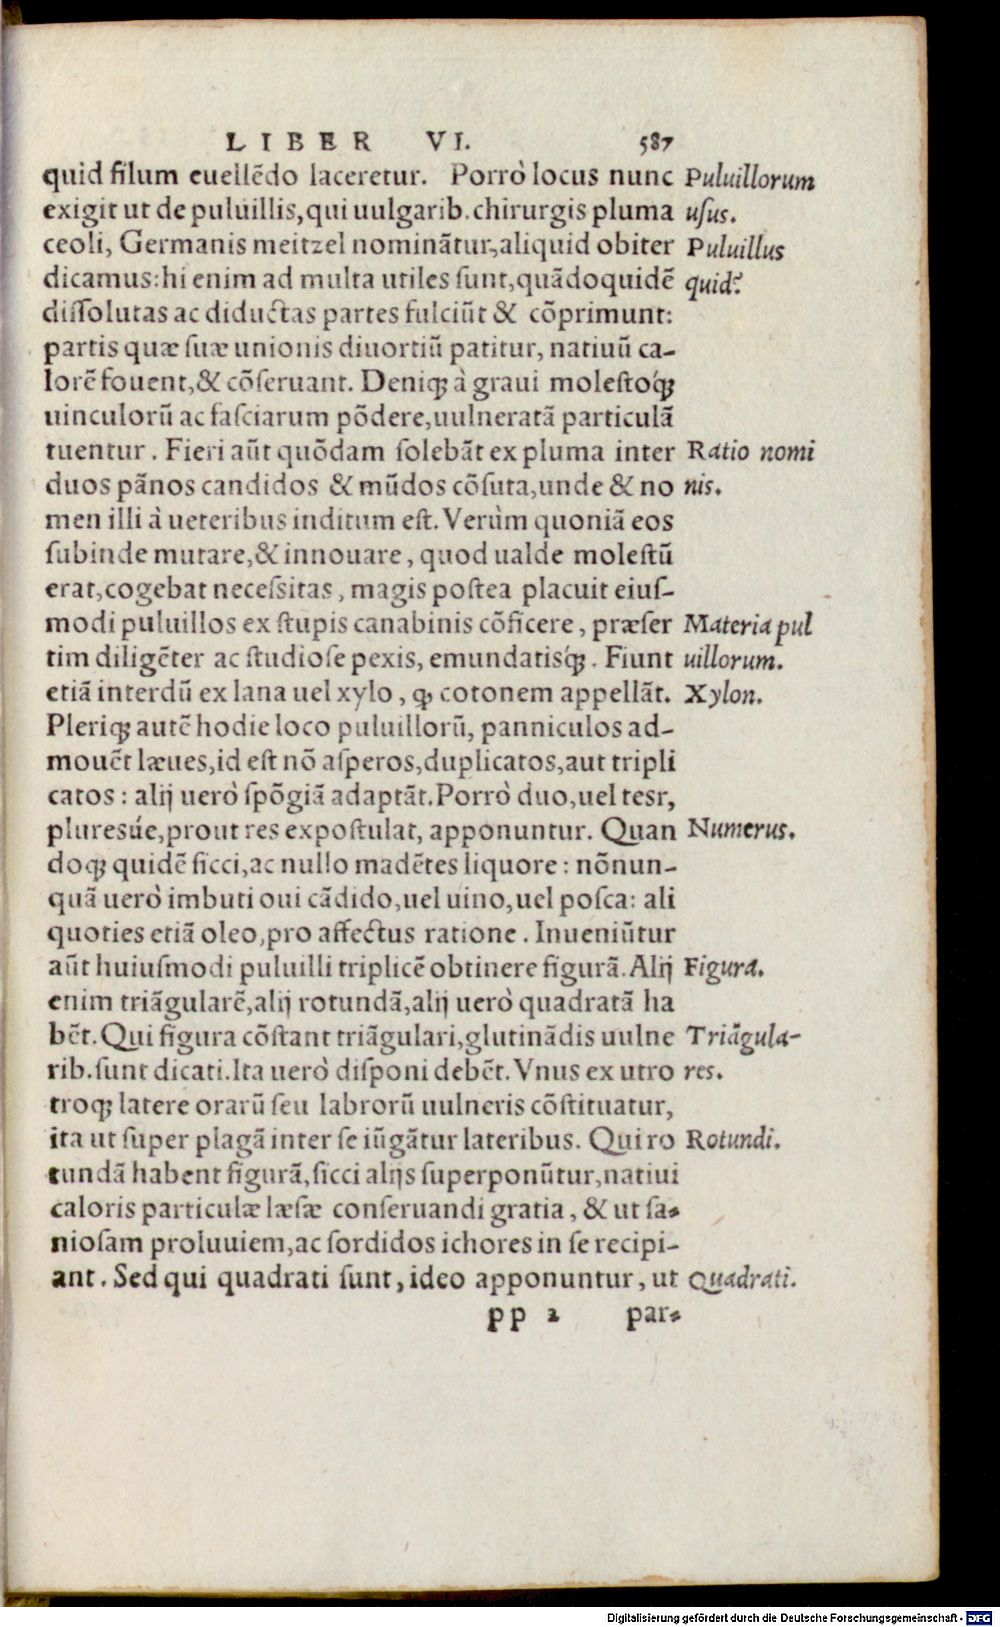 LIBER VI. 587
quid filum euellēdo laceretur. Porrò locus nunc
exigit ut de puluillis, qui uulgarib. chirurgis pluma
ceoli, Germanis meitzel nominātur, aliquid obiter
dicamus: hi enim ad multa utiles sunt, quādoquidē
dissolutas ac diductas partes fulciūt & cōprimunt:
partis quæ suæ unionis diuortiū patitur, natiuū ca-
lorē fouent, & cōseruant. Deniqꝫ à graui molestoq́ꝫ
uinculorū ac fasciarum pōdere, uulneratā particulā
tuentur. Fieri aūt quōdam solebāt ex pluma inter
duos pānos candidos & mūdos cōsuta, unde & no
men illi à ueteribus inditum est. Verùm quoniā eos
subinde mutare, & innouare, quod ualde molestū
erat, cogebat necessitas, magis postea placuit eius-
modi puluillos ex stupis canabinis cōficere, præser
tim diligēter ac studiose pexis, emundatisq́ꝫ. Fiunt
etiā interdū ex lana uel xylo, ꝙ cotonem appellāt.
Pleriqꝫ autē hodie loco puluillorū, panniculos ad-
mouēt læues, id est nō asperos, duplicatos, aut tripli
catos: alij uerò spōgiā adaptāt. Porrò duo, uel tesr,
pluresúe, prout res expostulat, apponuntur. Quan
doqꝫ quidē sicci, ac nullo madētes liquore: nōnun-
quā uerò imbuti oui cādido, uel uino, uel posca: ali
quoties etiā oleo, pro affectus ratione. Inueniūtur
aūt huiusmodi puluilli triplicē obtinere figurā. Alij
enim triāgularē, alij rotundā, alij uerò quadratā ha
bēt. Qui figura cōstant triāgulari, glutinādis uulne
rib. sunt dicati. Ita uerò disponi debēt. Vnus ex utro
troqꝫ latere orarū seu labrorū uulneris cōstituatur,
ita ut super plagā inter se iūgātur lateribus. Qui ro
tundā habent figurā, sicci alijs superponūtur, natiui
caloris particulæ læsæ conseruandi gratia, & ut sa-
niosam proluuiem, ac sordidos ichores in se recipi-
ant. Sed qui quadrati sunt, ideo apponuntur, ut
pp 2 par-
Puluillorum
usus.
Puluillus
quid?
Ratio nomi
nis.
Materia pul
uillorum.
Xylon.
Numerus.
Figura.
Triāgula-
res.
Rotundi.
Quadrati.
Digitalisierung gefördert durch die Deutsche Forschungsgemeinschaft - DFG